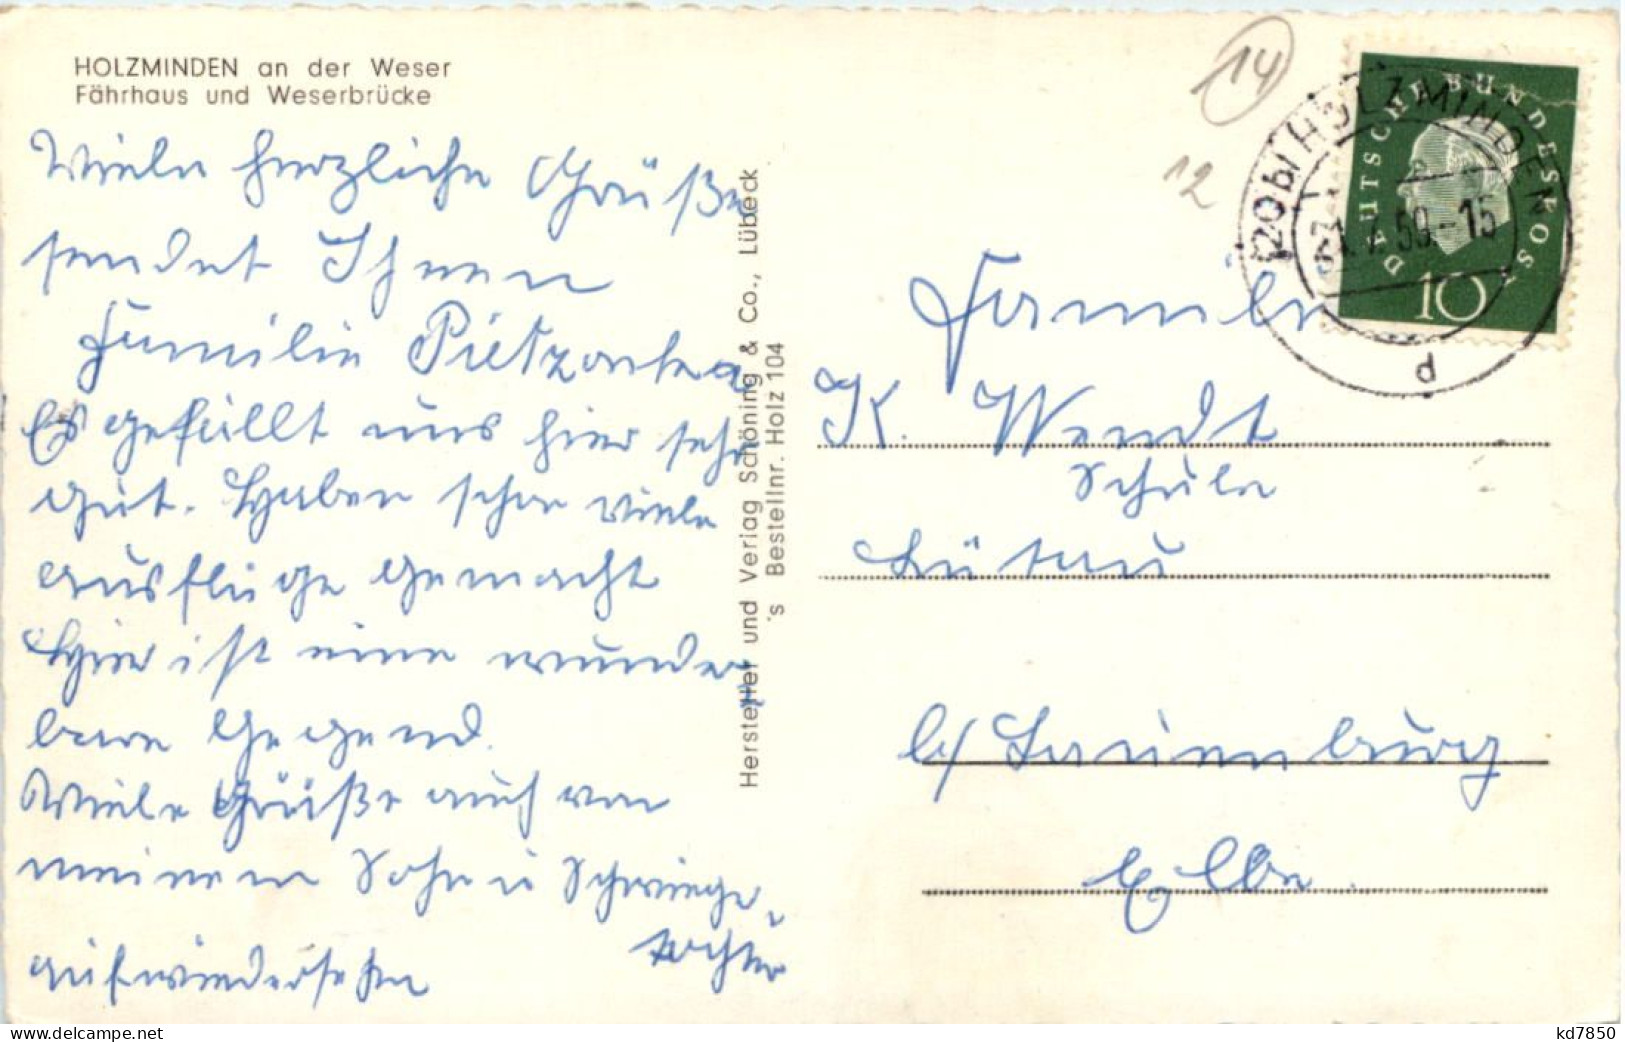 HOLZMINDEN an der Weser
Fährhaus und Weserbrücke
Viele herzliche Grüße
sendet Ihnen
Familie
Es gefällt uns hier sehr
gut. Haben schon viele
ausflüge gemacht
Hier ist eine wunder
bare Gegend.
Viele Grüße auch von
meinem Sohn u Schwieger
tochter
aufwiedersehen
Hersteller und Verlag Schöning & Co., Lübeck
's Bestellnr. Holz 104
14
12
DEUTSCHE BUNDESPOST
10
(20b) HOLZMINDEN
59.-15
d
Familie
K. Wendt
Schule
Lütau
b/ Lauenburg
Elbe.
kd7850
www.delcampe.net